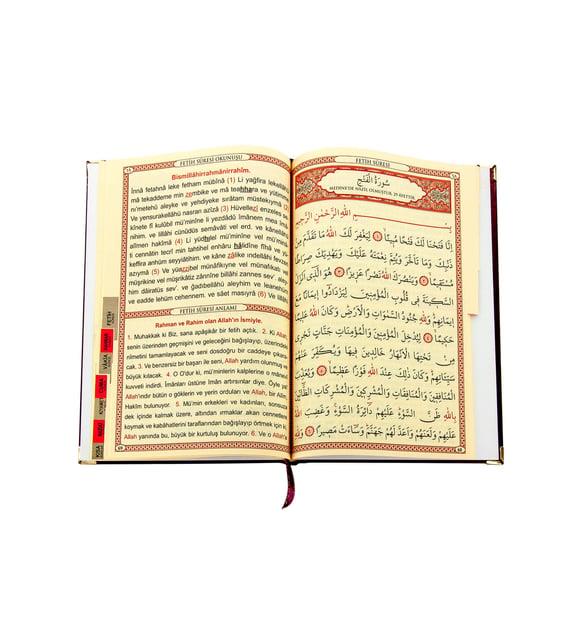 FETİH SÛRESİ OKUNUŞU
Bismillâhirrahmânirrahîm.
İnnâ fetahnâ leke fetham mübînâ (1) Li yağfira lekellâhü
mâ tekaddeme min zembike ve mâ teahhara ve yütimme
ni'metehû aleyke ve yehdiyeke sırâtam müstekıymâ (2)
Ve yensurakellâhü nasran azîzâ (3) Hüvellezî enzeles se
kînete fî kulûbil mü'minîne li yezdâdû îmânem mea îmâ
nihim. ve lillâhi cünûdüs semâvâti vel ard. ve kânellâhü
alîmen hakîmâ (4) Li yüdhilel mü'minîne vel mü'minâ
ti cennâtin tecrî min tahtihel enhâru hâlidîne fîhâ ve yü
keffira anhüm seyyiâtihim. ve kâne zâlike ındellâhi fevzen
azıymâ (5) Ve yüazzibel münâfikıyne vel münafikati vel
müşrikîne vel müşrikâtiz zânnîne billâhi zannes sev'. aley
him dâiratüs sev'. ve ğadıbellâhü aleyhim ve leanehüm
ve eadde lehüm cehennem. ve sâet masıyrâ (6) Ve lillâhi
FETİH SÛRESİ ANLAMI
Rahman ve Rahim olan Allah'ın İsmiyle.
1. Muhakkak ki Biz, sana apaşikâr bir fetih açtık. 2. Ki Allah
senin üzerinden geçmişini ve geleceğini bağışlayıp, üzerindeki
nîmetini tamamlayacak ve seni dosdoğru bir caddeye çıkara-
cak. 3. Ve benzersiz bir başarı ile seni, Allah yardım olunmaya
büyük kılacak. 4. O O'dur ki, mü'minlerin kalplerine o mânevî
kuvveti indirdi. Îmânları üstüne îmân artırsınlar diye. Öyle ya!
Allah'ındır bütün o göklerin ve yerin orduları ve Allah, bir Alîm,
Hakîm bulunuyor. 5. Mü'min erkekleri ve kadınları, sonsuza
dek içinde kalmak üzere, altından ırmaklar akan cennetlere
koymak ve kabahatlerini taraflarından bağışlayıp örtmek için ki
Allah yanında bu, büyük bir kurtuluş bulunuyor. 6. Ve o Allah'a
69
FETİH
VÂKIA
CUMA
KIYAMET
FETİH SÛRESİ
سُورَةُ الْفَتْحِ
MEDİNE'DE NÂZİL OLMUŞTUR. 29 ÂYETTİR.
بِسْمِ اللّٰهِ الرَّحْمٰنِ الرَّحِيمِ
اِنَّا فَتَحْنَا لَكَ فَتْحًا مُبِينًا ﴿١﴾ لِيَغْفِرَ لَكَ اللّٰهُ مَا تَقَدَّمَ مِنْ
ذَنْبِكَ وَمَا تَاَخَّرَ وَيُتِمَّ نِعْمَتَهُ عَلَيْكَ وَيَهْدِيَكَ صِرَاطًا
مُسْتَقِيمًا ﴿٢﴾ وَيَنْصُرَكَ اللّٰهُ نَصْرًا عَزِيزًا ﴿٣﴾ هُوَ الَّذِى اَنْزَلَ
السَّكِينَةَ فِى قُلُوبِ الْمُؤْمِنِينَ لِيَزْدَادُوا اِيمَانًا مَعَ
اِيمَانِهِمْ وَلِلّٰهِ جُنُودُ السَّمٰوَاتِ وَالْاَرْضِ وَكَانَ اللّٰهُ عَلِيمًا
حَكِيمًا ﴿٤﴾ لِيُدْخِلَ الْمُؤْمِنِينَ وَالْمُؤْمِنَاتِ جَنَّاتٍ تَجْرِى
مِنْ تَحْتِهَا الْاَنْهَارُ خَالِدِينَ فِيهَا وَيُكَفِّرَ عَنْهُمْ
سَيِّئَاتِهِمْ وَكَانَ ذٰلِكَ عِنْدَ اللّٰهِ فَوْزًا عَظِيمًا ﴿٥﴾ وَيُعَذِّبَ
الْمُنَافِقِينَ وَالْمُنَافِقَاتِ وَالْمُشْرِكِينَ وَالْمُشْرِكَاتِ الظَّانِّينَ
بِاللّٰهِ ظَنَّ السَّوْءِ عَلَيْهِمْ دَائِرَةُ السَّوْءِ وَغَضِبَ اللّٰهُ
عَلَيْهِمْ وَلَعَنَهُمْ وَاَعَدَّ لَهُمْ جَهَنَّمَ وَسَاءَتْ مَصِيرًا ﴿٦﴾ وَلِلّٰهِ
68